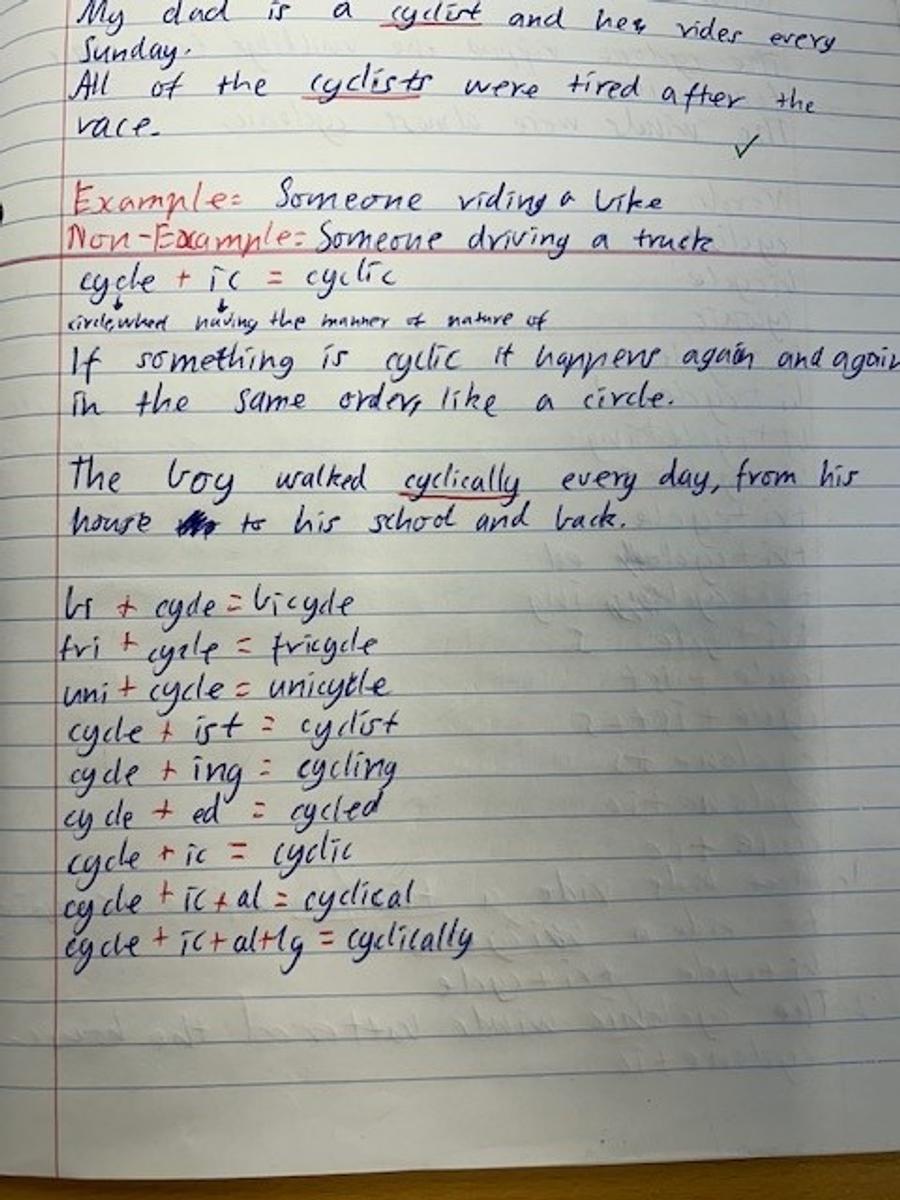 My dad is a cyclist and he rides every
Sunday.
All of the cyclists were tired after the
race.
Example: Someone riding a bike
Non-Example: Someone driving a truck
cycle + ic = cyclic
circle, wheel having the manner of nature of
If something is cyclic it happens again and again
in the same order, like a circle.
The boy walked cyclically every day, from his
house to his school and back.
bi + cycle = bicycle
tri + cycle = tricycle
uni + cycle = unicycle
cycle + ist = cyclist
cycle + ing = cycling
cycle + ed = cycled
cycle + ic = cyclic
cycle + ic + al = cyclical
cycle + ic + al + ly = cyclically